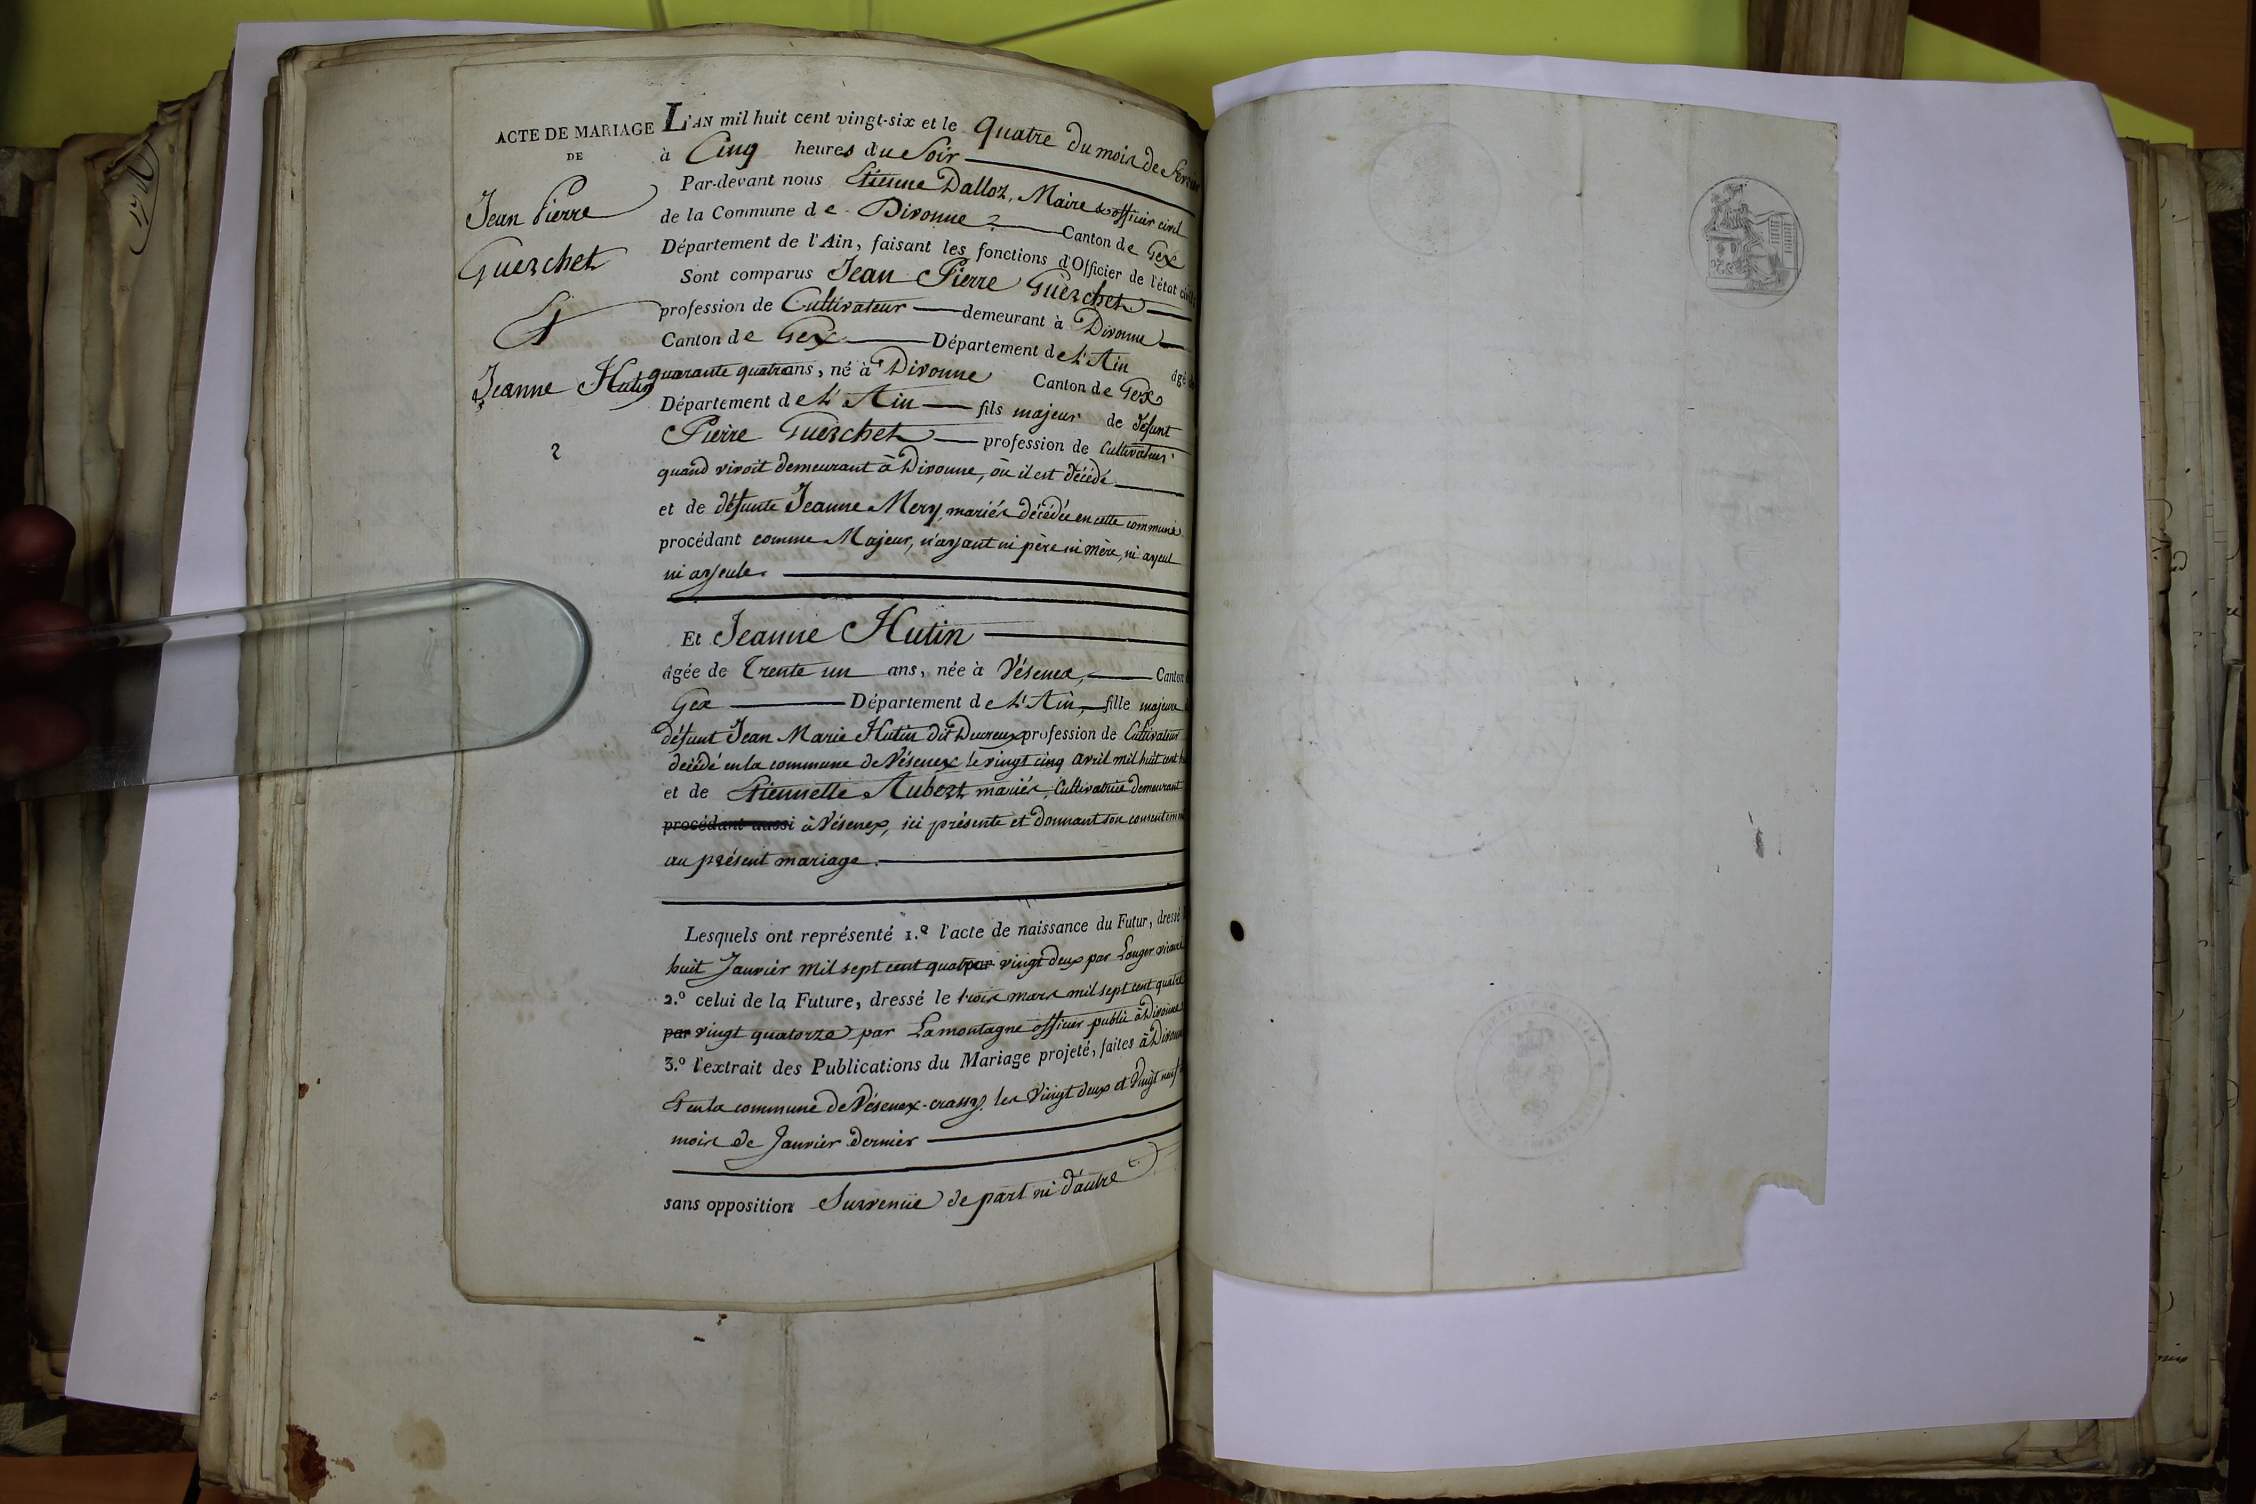 ACTE DE MARIAGE
DE
Jean Pierre
Guerchet
Et
Jeanne Hutin
L'AN mil huit cent vingt-six et le quatre du mois de fevrier
à Cinq heures du Soir
Par-devant nous Etienne Dalloz, Maire & officier civil
de la Commune de Divonne Canton de Gex
Département de l'Ain, faisant les fonctions d'Officier de l'état civil
Sont comparus Jean Pierre Guerchet
profession de Cultivateur demeurant à Divonne
Canton de Gex Département de L'Ain âgé de
quarante quatre ans, né à Divonne Canton de Gex
Département de L'Ain fils majeur de défunt
Pierre Guerchet profession de Cultivateur
quand vivoit demeurant à Divonne, où il est décédé
et de défunte Jeanne Mery, mariés décédée en cette commune
procédant comme Majeur, n'ayant ni père ni mère, ni ayeul
ni ayeule.
Et Jeanne Hutin
âgée de Trente un ans, née à Vésenex, Canton
Gex Département de L'Ain, fille majeure
défunt Jean Marie Hutin dit Ducreux profession de Cultivateur
décédé en la commune de Vésenex le vingt cinq avril mil huit cent
et de Etiennette Aubert mariés, Cultivatrice demeurant
procédant aussi à Vésenex, ici présente et donnant son consentement
au présent mariage.
Lesquels ont représenté 1.º l'acte de naissance du Futur, dressé
huit Janvier mil sept cent quatre vingt deux par Lauger vicaire
2.º celui de la Future, dressé le trois mars mil sept cent quatre
par vingt quatorze par Lamontagne officier public à Divonne
3.º l'extrait des Publications du Mariage projeté, faites à Divonne
Et en la commune de Vésenex-crassy les Vingt deux et Vingt neuf
mois de Janvier dernier
sans opposition Survenüe de part ni d'autre